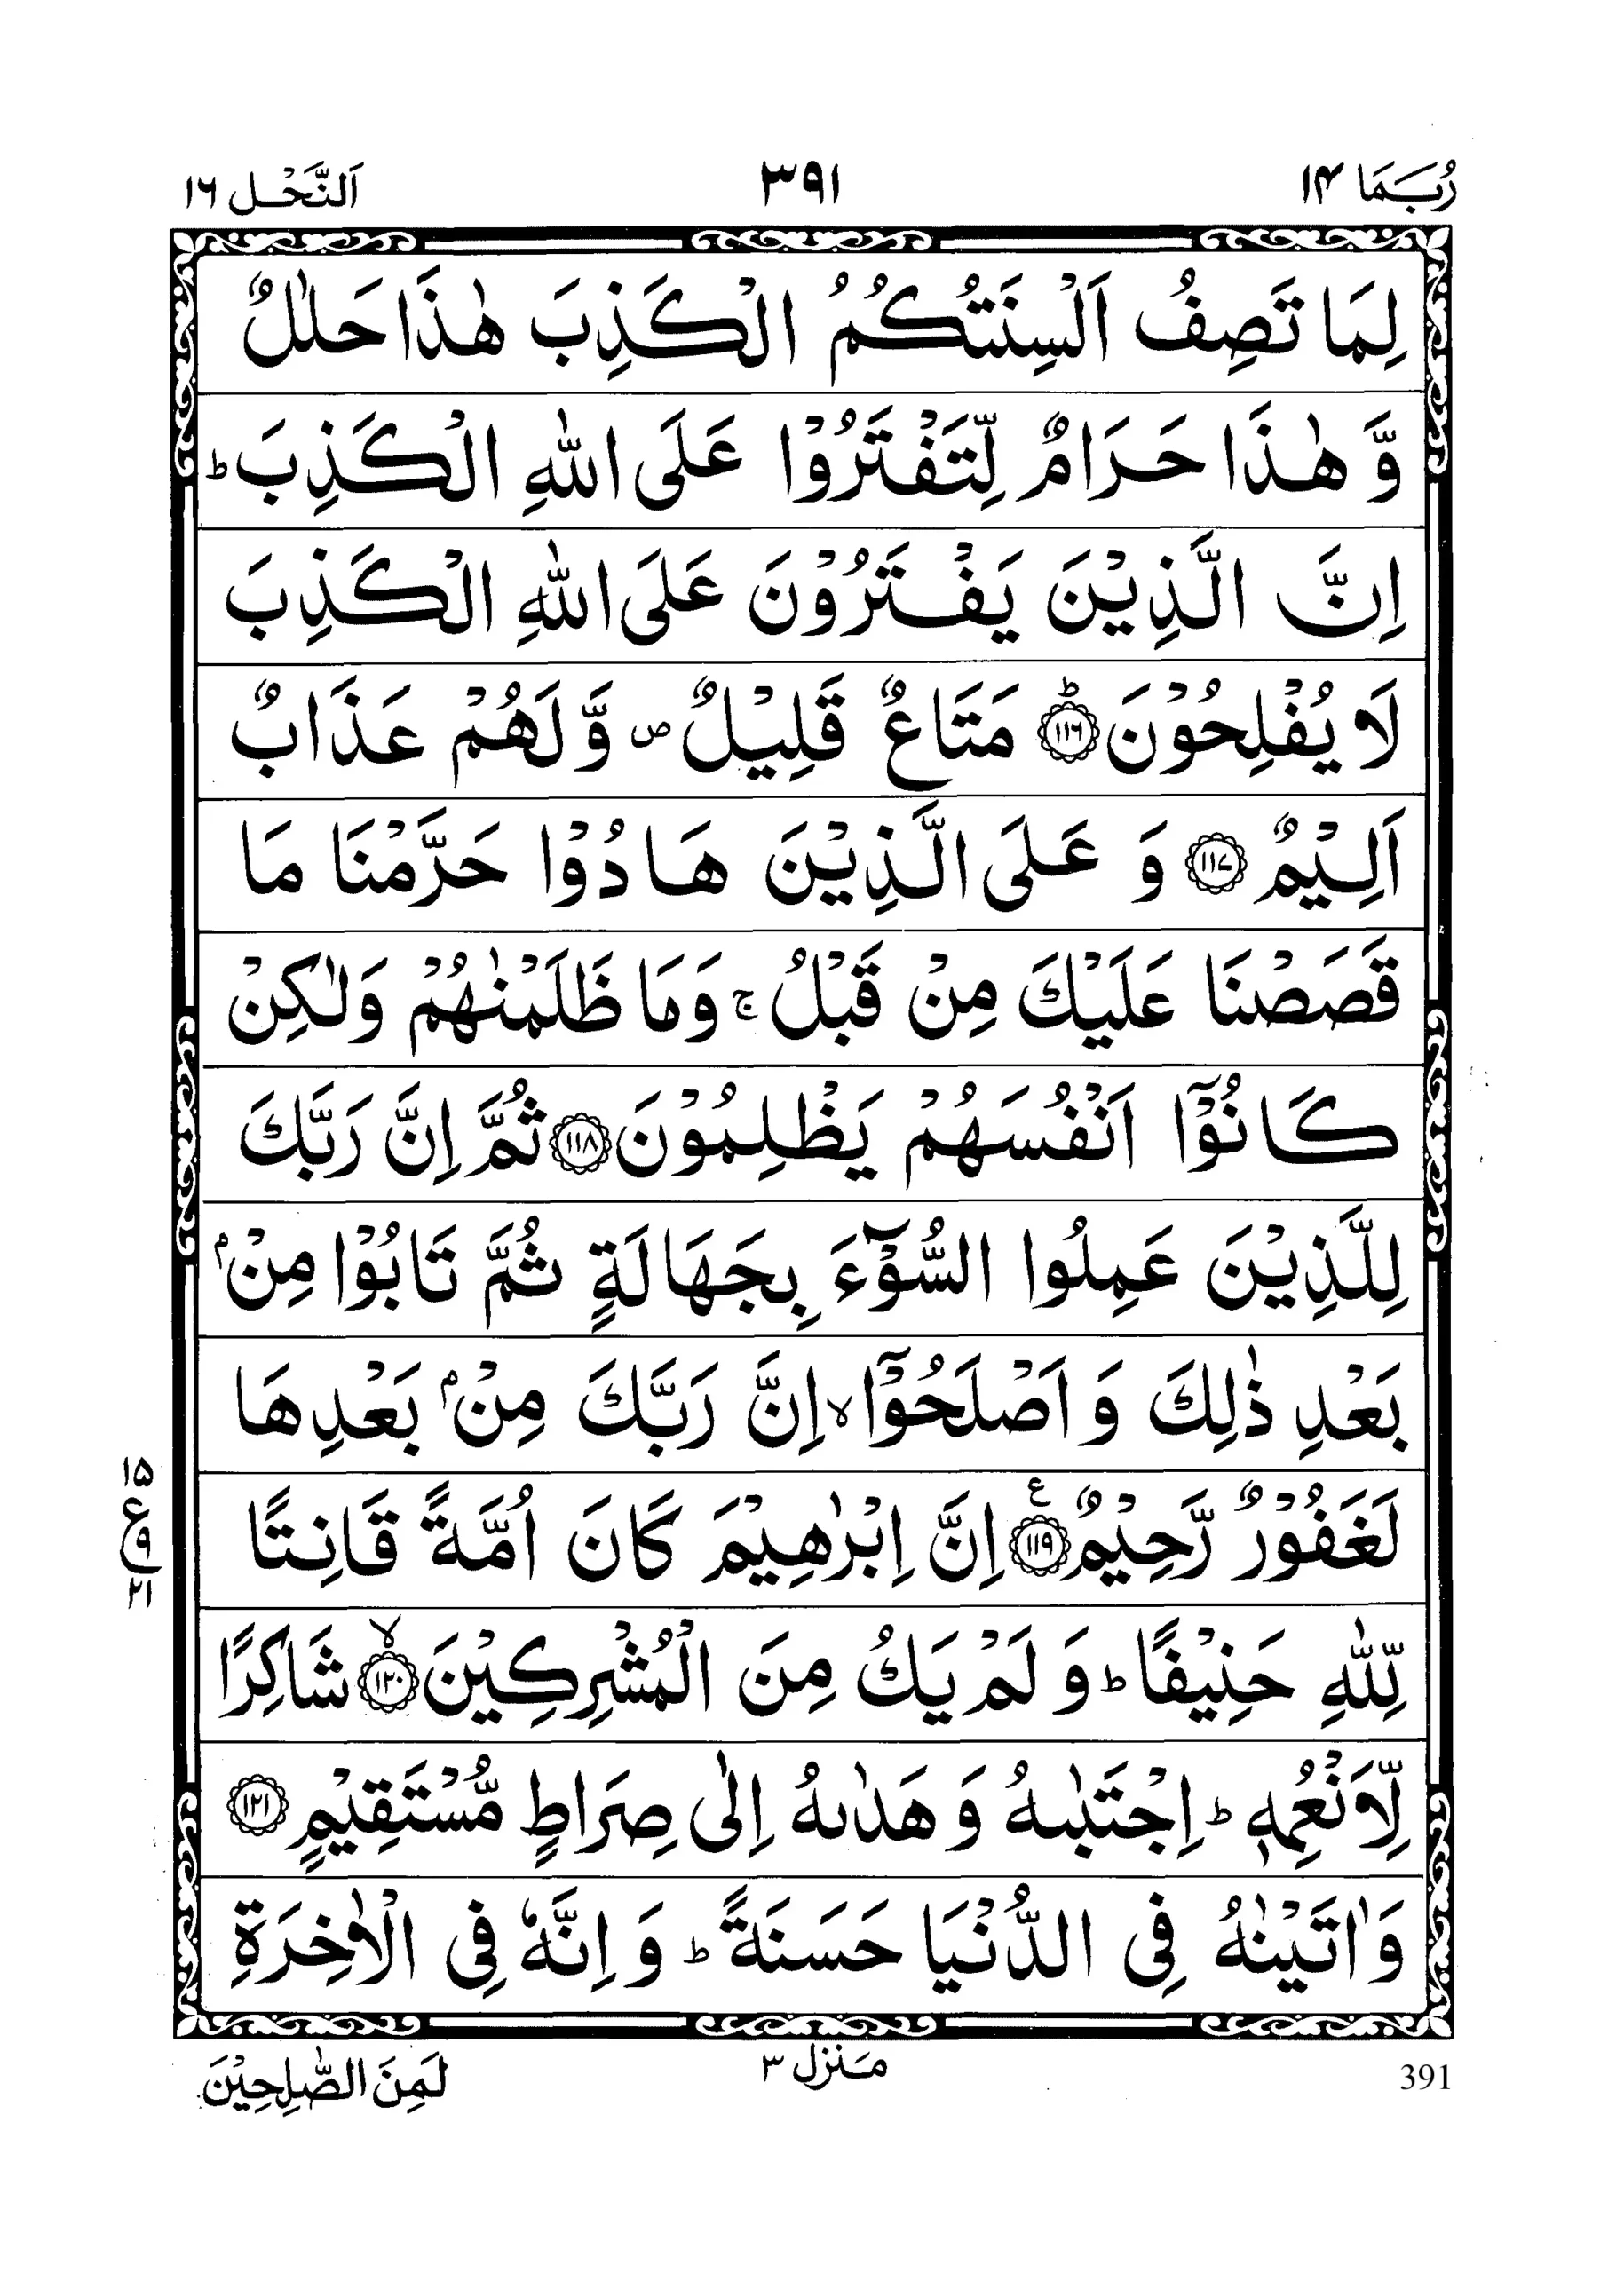 رُبَمَا ١٤
٣٩١
اَلنَّحْل ١٦
لِمَا تَصِفُ اَلْسِنَتُكُمُ الْكَذِبَ هٰذَا حَلٰلٌ
وَّ هٰذَا حَرَامٌ لِّتَفْتَرُوْا عَلَى اللّٰهِ الْكَذِبَ ؕ
اِنَّ الَّذِيْنَ يَفْتَرُوْنَ عَلَى اللّٰهِ الْكَذِبَ
لَا يُفْلِحُوْنَ ؕ ﴿۱۱۶﴾ مَتَاعٌ قَلِيْلٌ ۪ وَّ لَهُمْ عَذَابٌ
اَلِيْمٌ ﴿۱۱۷﴾ وَ عَلَى الَّذِيْنَ هَادُوْا حَرَّمْنَا مَا
قَصَصْنَا عَلَيْكَ مِنْ قَبْلُ ۚ وَمَا ظَلَمْنٰهُمْ وَلٰكِنْ
كَانُوْۤا اَنْفُسَهُمْ يَظْلِمُوْنَ ﴿۱۱۸﴾ ثُمَّ اِنَّ رَبَّكَ
لِلَّذِيْنَ عَمِلُوا السُّوْٓءَ بِجَهَالَةٍ ثُمَّ تَابُوْا مِنْۢ
بَعْدِ ذٰلِكَ وَ اَصْلَحُوْۤا ۙ اِنَّ رَبَّكَ مِنْۢ بَعْدِهَا
لَغَفُوْرٌ رَّحِيْمٌ ﴿۱۱۹﴾ ع اِنَّ اِبْرٰهِيْمَ كَانَ اُمَّةً قَانِتًا
لِّلّٰهِ حَنِيْفًا ؕ وَ لَمْ يَكُ مِنَ الْمُشْرِكِيْنَ ۙ ﴿۱۲۰﴾ شَاكِرًا
لِّاَنْعُمِهٖ ؕ اِجْتَبٰىهُ وَ هَدٰىهُ اِلٰى صِرَاطٍ مُّسْتَقِيْمٍ ﴿۱۲۱﴾
وَ اٰتَيْنٰهُ فِى الدُّنْيَا حَسَنَةً ؕ وَ اِنَّهٗ فِى الْاٰخِرَةِ
۱۵
ع
۹
۲۱
لَمِنَ الصّٰلِحِيْنَ
مَنزل ٣
391